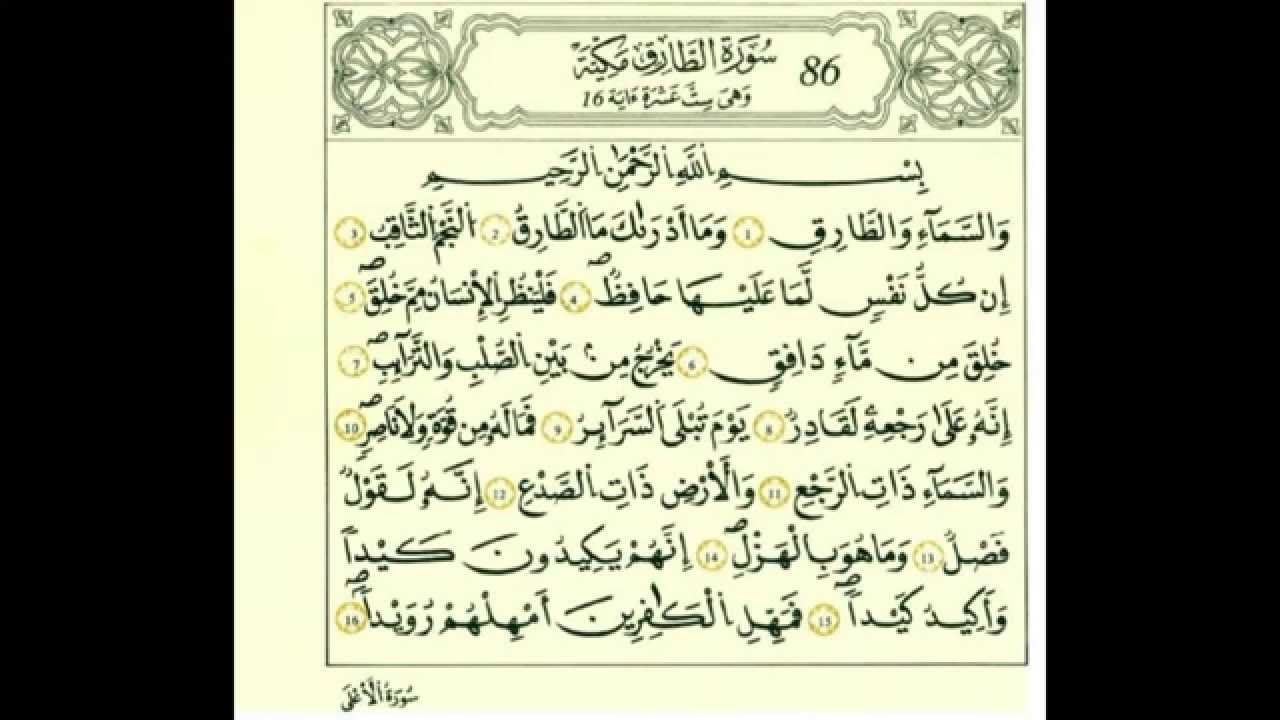 سُورَةُ الطَّارِقِ مَكِّيَّةٌ 86
وَهْيَ سِتَّ عَشْرَةَ ءَايَةً 16
بِسْمِ اِ۬للَّهِ اِ۬لرَّحْمَٰنِ اِ۬لرَّحِيمِ
وَالسَّمَآءِ وَالطَّارِقِ 1 وَمَا أَدْرَىٰكَ مَا اَ۬لطَّارِقُ 2 اُ۬لنَّجْمُ اُ۬لثَّاقِبُ 3
إِن كُلُّ نَفْسٍ لَّمَا عَلَيْهَا حَافِظٌ 4 فَلْيَنظُرِ اِ۬لْإِنسَانُ مِمَّ خُلِقَ 5
خُلِقَ مِن مَّآءٍ دَافِقٍ 6 يَخْرُجُ مِنۢ بَيْنِ اِ۬لصُّلْبِ وَالتَّرَآئِبِ 7
إِنَّهُۥ عَلَىٰ رَجْعِهِۦ لَقَادِرٌ 8 يَوْمَ تُبْلَى اَ۬لسَّرَآئِرُ 9 فَمَا لَهُۥ مِن قُوَّةٍ وَلَا نَاصِرٍ 10
وَالسَّمَآءِ ذَاتِ اِ۬لرَّجْعِ 11 وَالْأَرْضِ ذَاتِ اِ۬لصَّدْعِ 12 إِنَّهُۥ لَقَوْلٌ
فَصْلٌ 13 وَمَا هُوَ بِالْهَزْلِ 14 إِنَّهُمْ يَكِيدُونَ كَيْداً
وَأَكِيدُ كَيْداً 15 فَمَهِّلِ اِ۬لْكَافِرِينَ أَمْهِلْهُمْ رُوَيْداً 16
سُورَةُ اُ۬لْأَعْلَىٰ